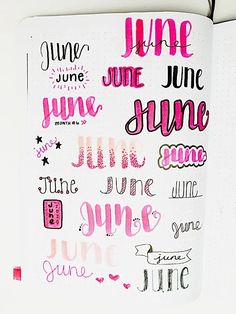 June
June
june
JUNE
June
June
MONTH #6
June
June
June
June
June
JUNE
June
June
June
June
JUNE
june
June
June